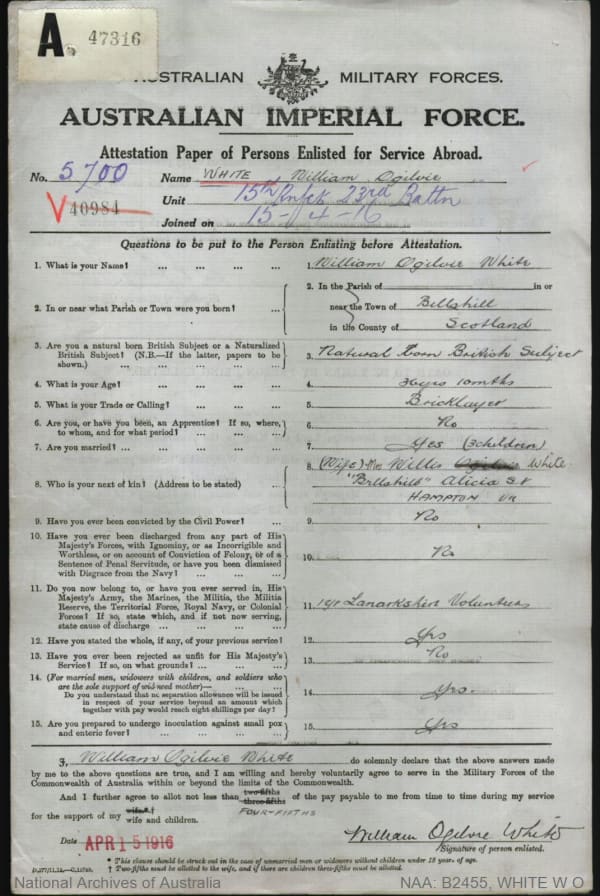 A. 47316
AUSTRALIAN MILITARY FORCES.
AUSTRALIAN IMPERIAL FORCE.
Attestation Paper of Persons Enlisted for Service Abroad.
No. 5700 Name WHITE William Ogilvie
V 40984 Unit 15th Rnfct 23rd Battn
Joined on 15-4-16
Questions to be put to the Person Enlisting before Attestation.
1. What is your Name? ... ... ... ... William Ogilvie White
2. In or near what Parish or Town were you born? ... 2. In the Parish of in or
near the Town of Bellshill
in the County of Scotland
3. Are you a natural born British Subject or a Naturalized
British Subject? (N.B.—If the latter, papers to be
shown.) ... ... ... ... 3. Natural Born British Subject
4. What is your Age? ... ... ... ... 4. 36 yrs 10 mths
5. What is your Trade or Calling? ... ... ... 5. Bricklayer
6. Are you, or have you been, an Apprentice? If so, where,
to whom, and for what period? ... ... ... 6. No
7. Are you married? ... ... ... ... 7. Yes (3 children)
8. Who is your next of kin? (Address to be stated) ... 8. (Wife) Mrs Willis Ogilvie White
"Bellshill" Alicia St
HAMPTON Vic
9. Have you ever been convicted by the Civil Power? ... 9. No
10. Have you ever been discharged from any part of His
Majesty's Forces, with Ignominy, or as Incorrigible and
Worthless, or on account of Conviction of Felony, or of a
Sentence of Penal Servitude, or have you been dismissed
with Disgrace from the Navy? ... ... ... 10. No
11. Do you now belong to, or have you ever served in, His
Majesty's Army, the Marines, the Militia, the Militia
Reserve, the Territorial Force, Royal Navy, or Colonial
Forces? If so, state which, and if not now serving,
state cause of discharge ... ... ... 11. 1 yr Lanarkshire Volunteers
12. Have you stated the whole, if any, of your previous service? 12. Yes
13. Have you ever been rejected as unfit for His Majesty's
Service? If so, on what grounds? ... ... ... 13. No
14. (For married men, widowers with children, and soldiers who
are the sole support of widowed mother)—
Do you understand that no separation allowance will be issued
in respect of your service beyond an amount which
together with pay would reach eight shillings per day? 14. Yes.
15. Are you prepared to undergo inoculation against small pox
and enteric fever? ... ... ... ... 15. Yes
I, William Ogilvie White do solemnly declare that the above answers made
by me to the above questions are true, and I am willing and hereby voluntarily agree to serve in the Military Forces of the
Commonwealth of Australia within or beyond the limits of the Commonwealth.
And I further agree to allot not less than two-fifths three-fifths of the pay payable to me from time to time during my service
FOUR-FIFTHS
for the support of my wife* † wife and children.
Date APR 15 1916 William Ogilvie White
Signature of person enlisted.
* This clause should be struck out in the case of unmarried men or widowers without children under 18 years of age.
† Two-fifths must be allotted to the wife, and if there are children three-fifths must be allotted.
National Archives of Australia NAA: B2455, WHITE W O